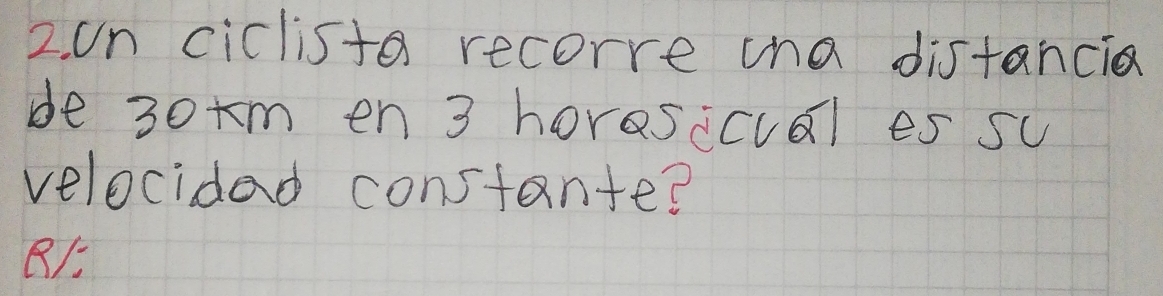 2.Un ciclista recorre una distancia
de 30km en 3 horas¿cuál es su
velocidad constante?
R/: